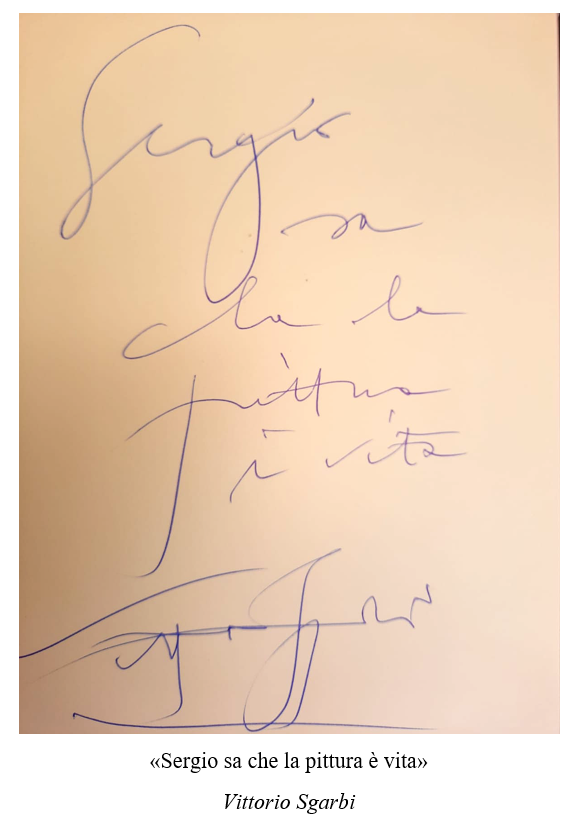 Sergio
sa
che la
pittura
è vita
«Sergio sa che la pittura è vita»
Vittorio Sgarbi